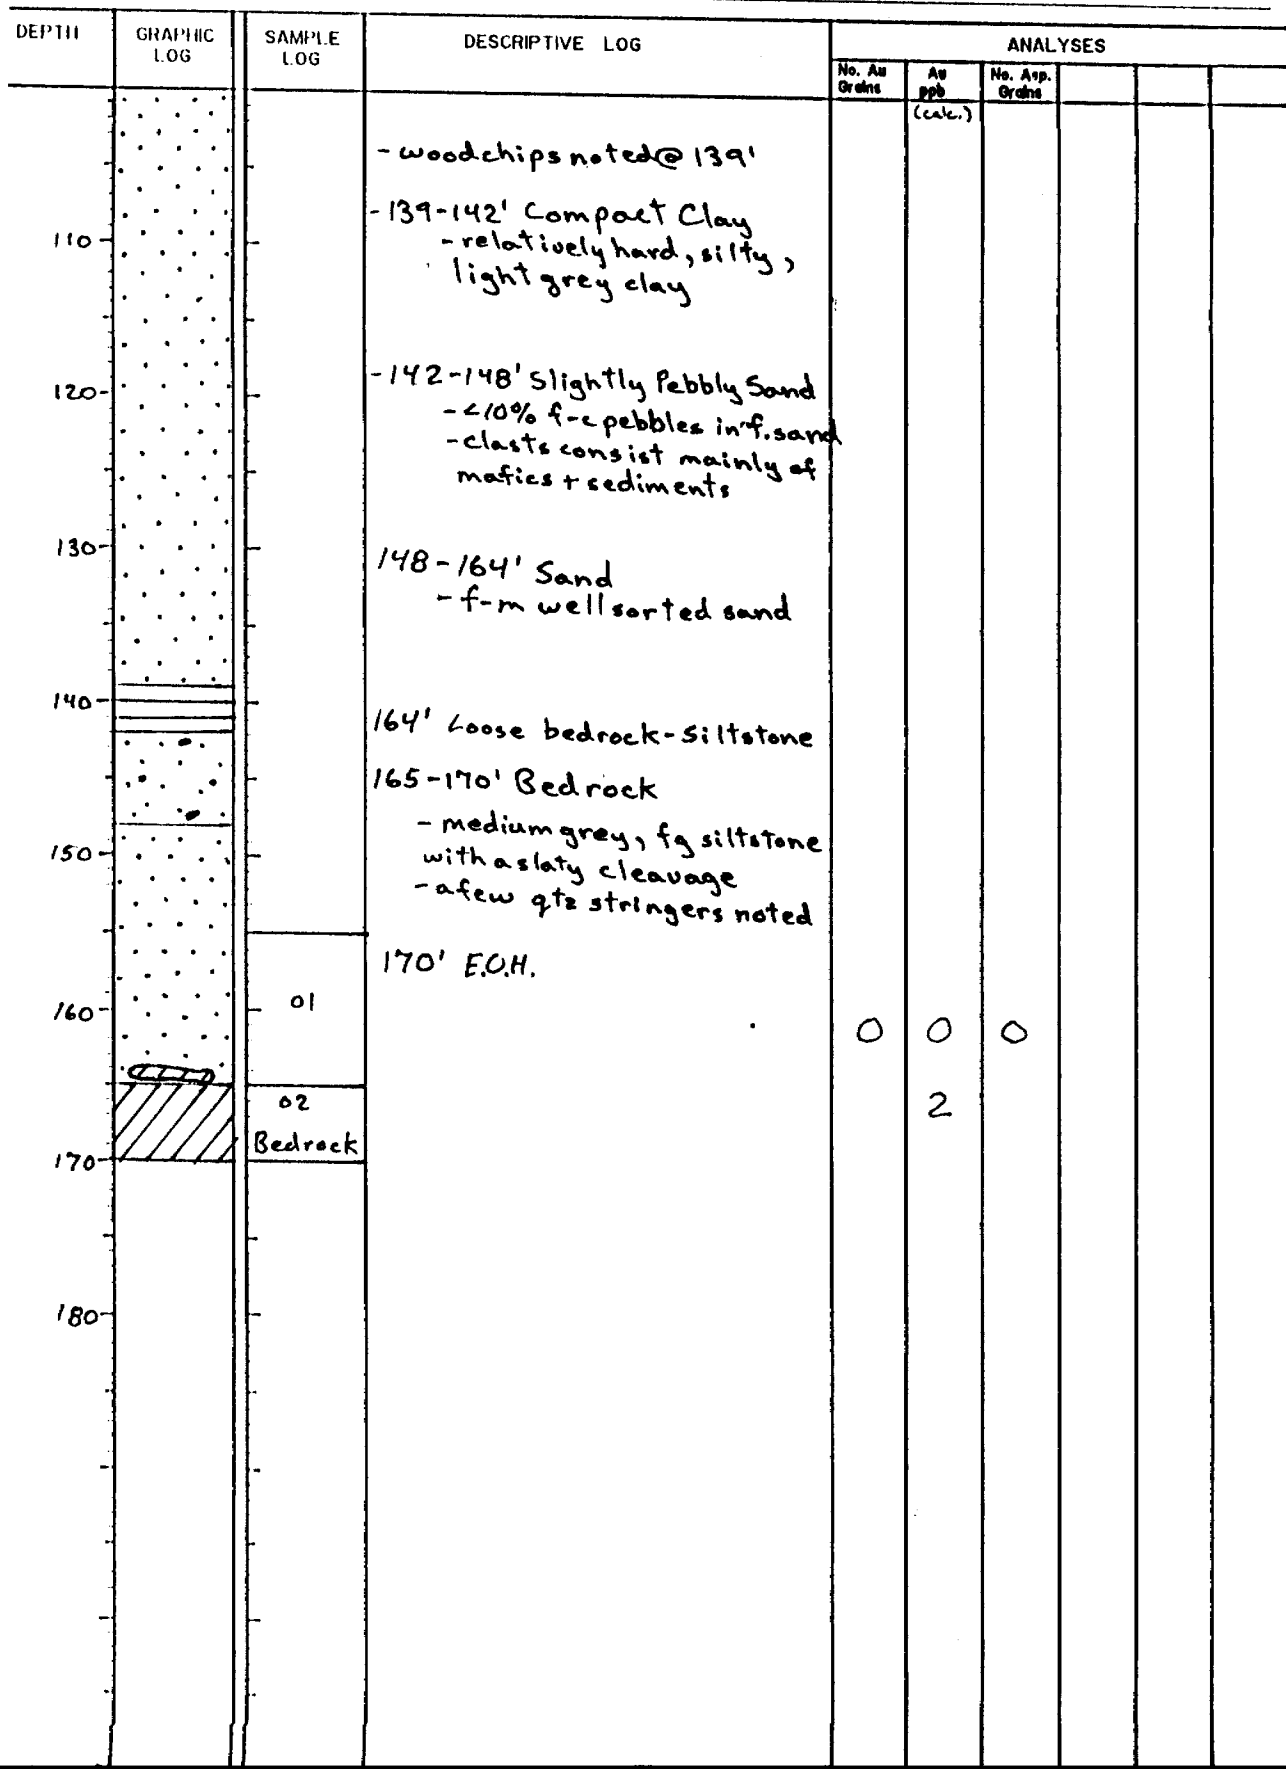 DEPTH
GRAPHIC
LOG
SAMPLE
LOG
DESCRIPTIVE LOG
ANALYSES
No. Au
Grains
Au
ppb
(calc.)
No. Asp.
Grains
- woodchips noted @ 139'
- 139-142' Compact Clay
- relatively hard, silty,
light grey clay
- 142-148' Slightly Pebbly Sand
- <10% f-c pebbles in f. sand
- clasts consist mainly of
mafics + sediments
148-164' Sand
- f-m well sorted sand
164' Loose bedrock-Siltstone
165-170' Bedrock
- medium grey, fg siltstone
with a slaty cleavage
- a few qtz stringers noted
170' E.O.H.
110
120
130
140
150
160
170
180
01
02
Bedrock
0 0 0
2